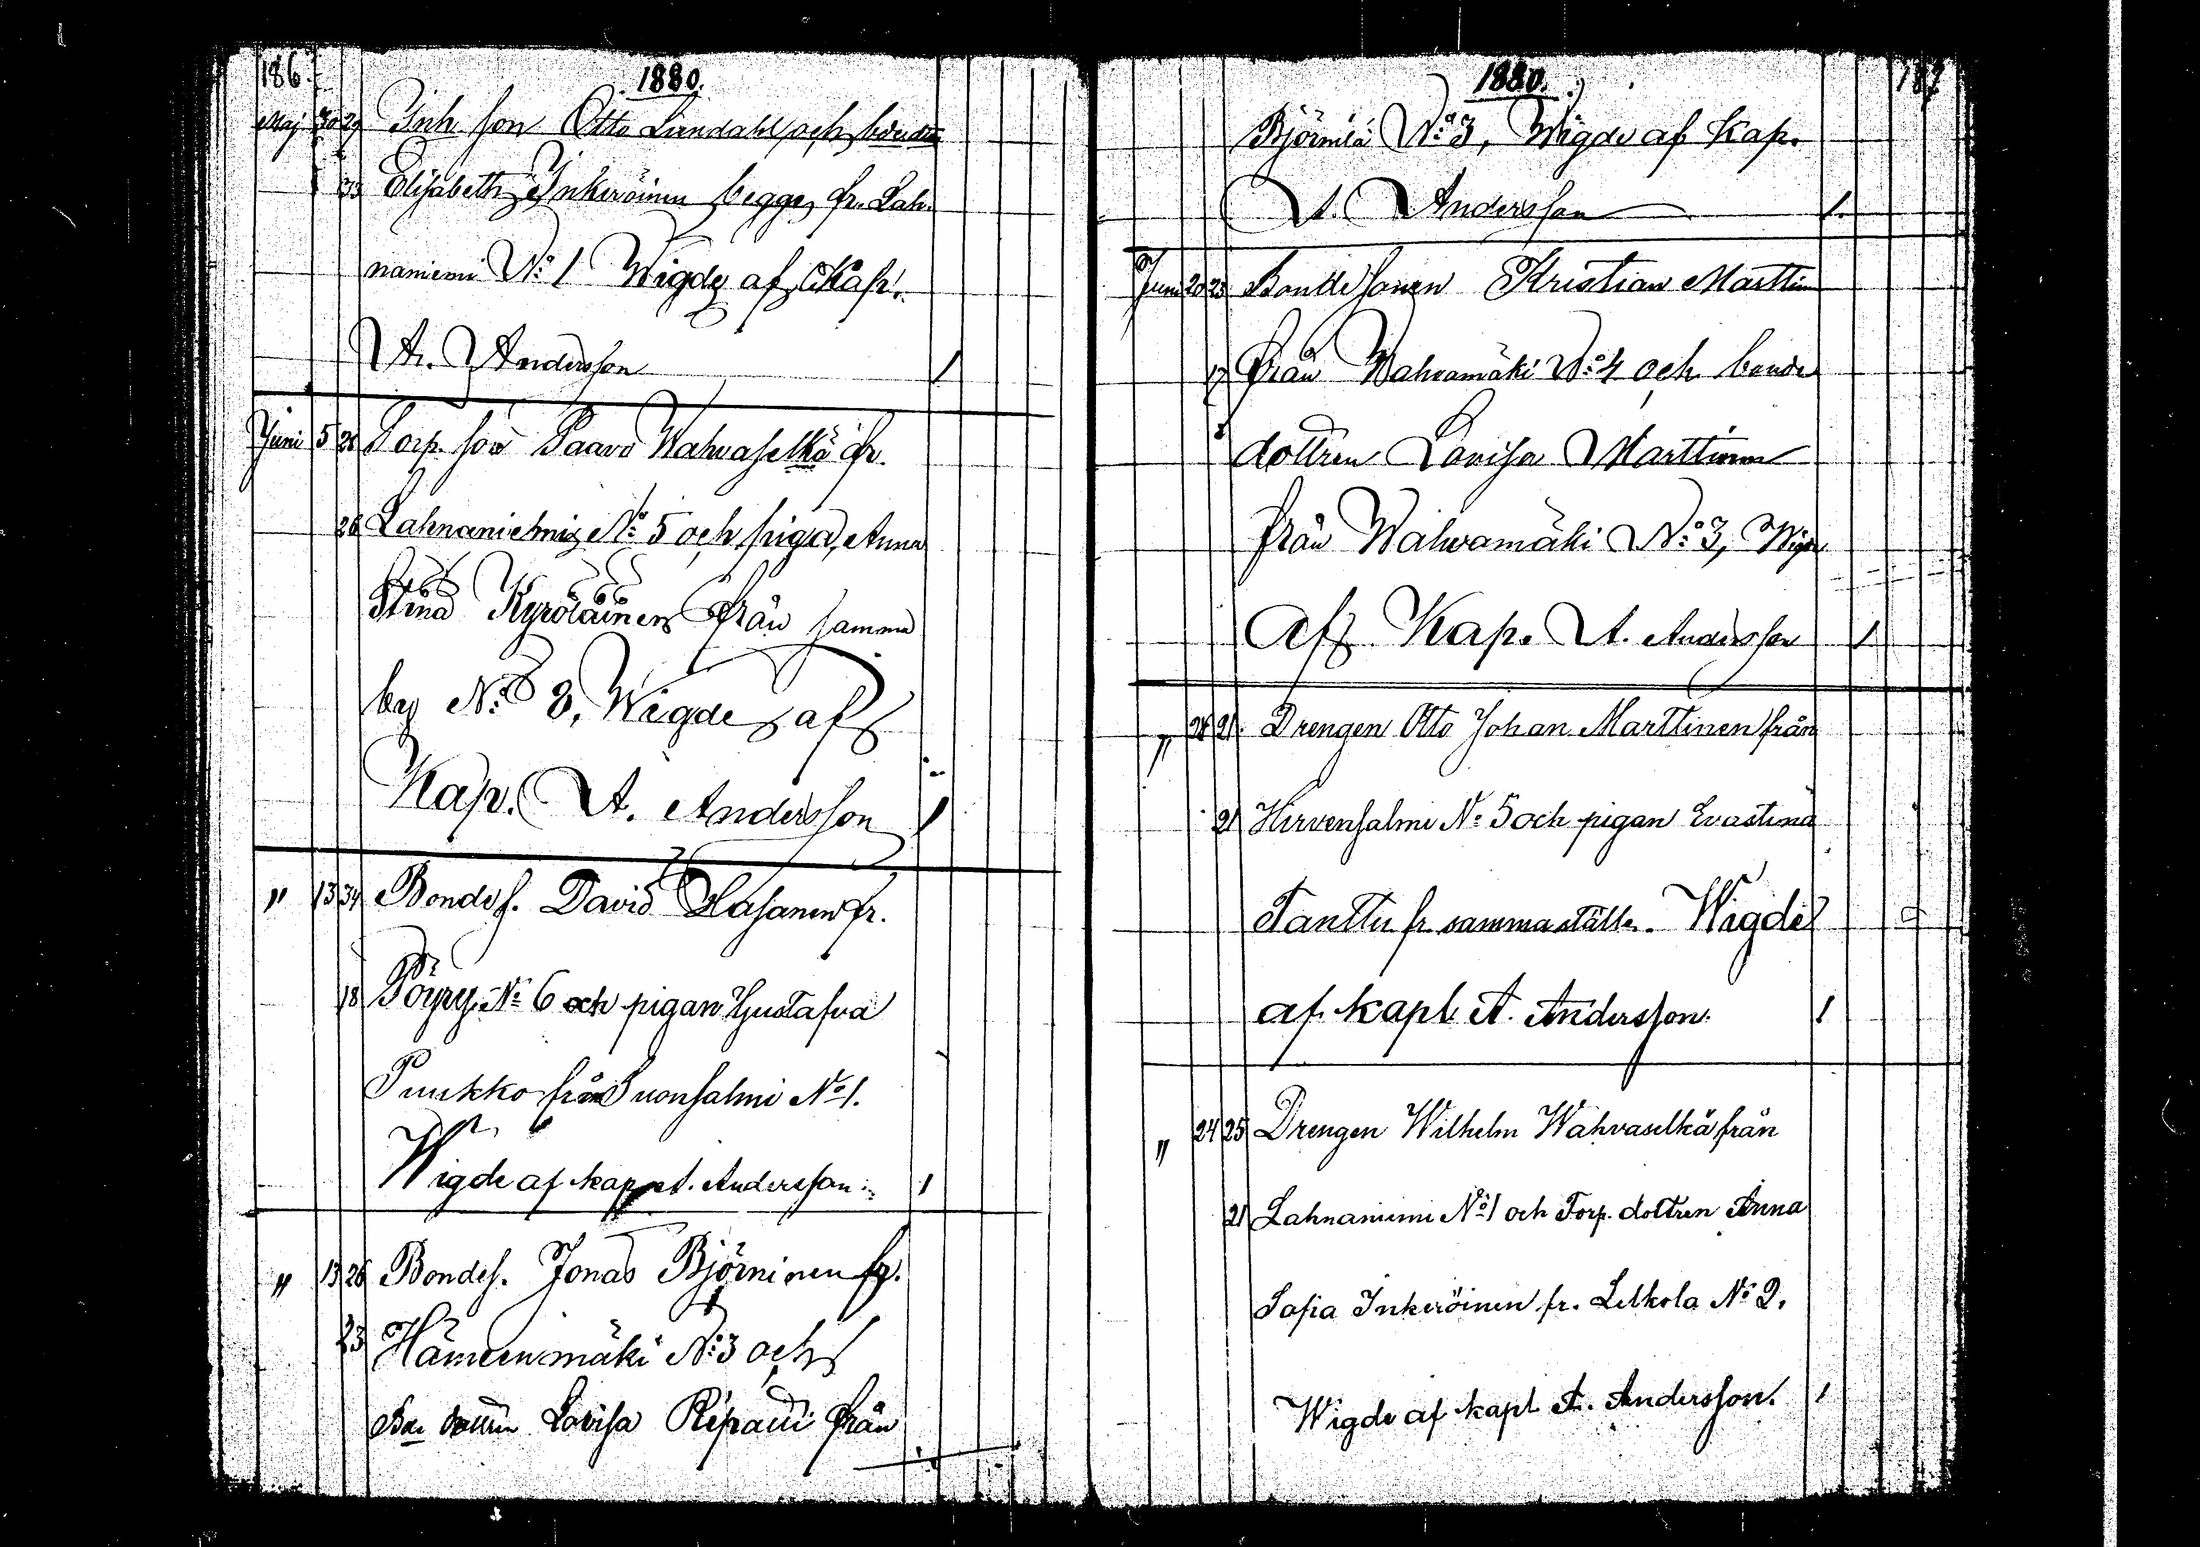 186.
1880.
Maj 30 29 Inh. son Otto Lundahl och bonded.
23 Elisabeth Inkeröinen begge fr. Lah-
naniemi No 1 Wigde af Kap.
A. Andersson 1
Juni 5 28 Torp. son Paavo Wahvaselkä fr.
26 Lahnaniemi No 5 och piga, Anna
Stina Kyröläinen från samma
by No 8, Wigde af
Kap. A. Andersson 1
" 13 34 Bondes. David Hasanen fr.
18 Pöyry No 6 och pigan Gustafva
Puukko från Suonsalmi No 1.
Wigde af kap A. Andersson. 1
" 13 26 Bondes. Jonas Björninen fr.
23 Hämeenmäki No 3 och
Lovisa Ripatti från
1880.
187
Björnilä No 3, Wigde af Kap.
A. Andersson 1.
Juni 20 23 Bondesonen Kristian Marttin
17 från Wahvamäki No 4 och bonde
dottren Lovisa Marttinen
från Wahvamäki No 3, Wigde
af Kap. A. Andersson 1
" 24 21 Drengen Otto Johan Marttinen från
21 Hirvensalmi No 5 och pigan Evastina
Tanttu fr samma ställe. Wigde
af kapl A. Andersson. 1
" 24 25 Drengen Wilhelm Wahvaselkä från
21 Lahnaniemi No 1 och Torp. dottren Anna
Sofia Inkeröinen fr. Lelkola No 2.
Wigde af kapl A. Andersson. 1